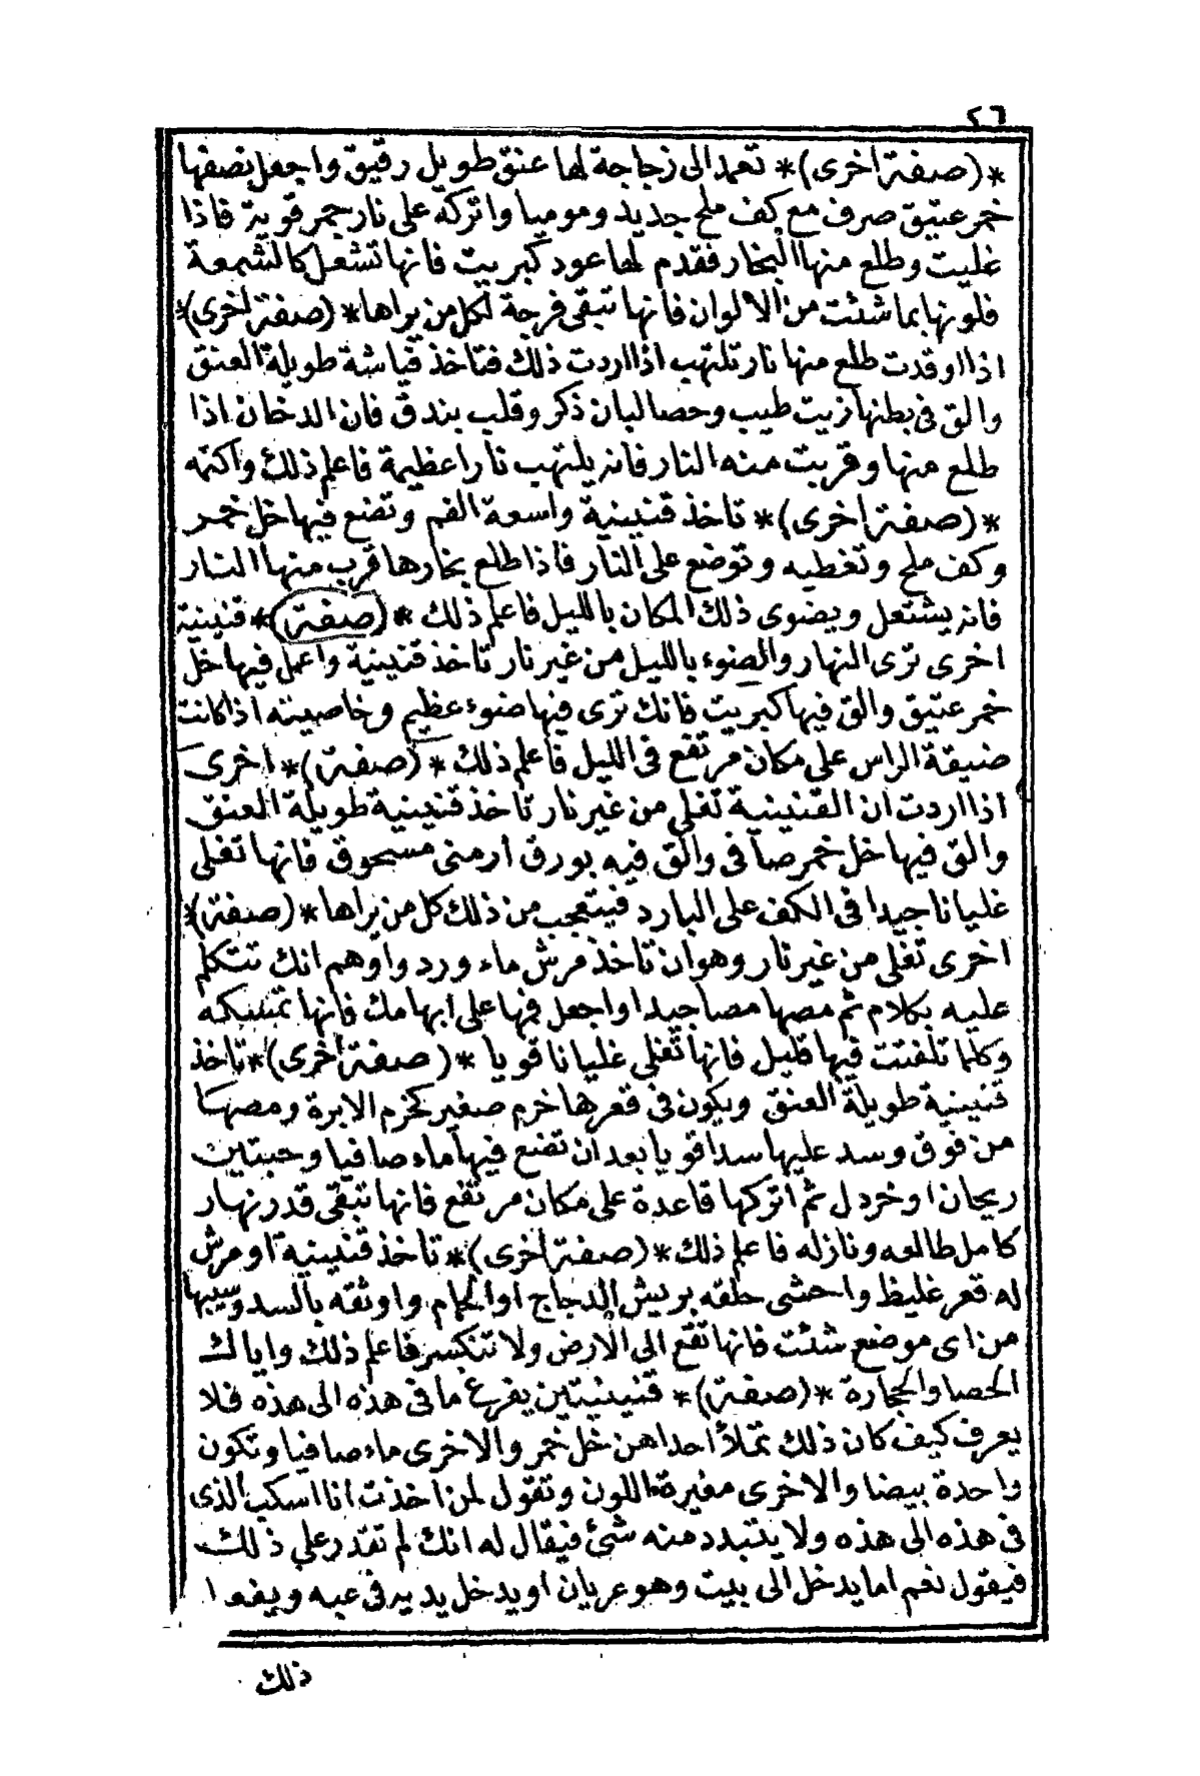 ٢٦
*(صفة اخرى)* تعمد الى زجاجة لها عنق طويل رقيق واجعل نصفها
خمر عتيق صرف مع كف ملح جديد وموميا واتركه على نار جمر قوية فاذا
غليت وطلع منها البخار فقدم لها عود كبريت فانها تشعل كالشمعة
فلونها بما شئت من الالوان فانها تبقى فرجة لكل من يراها *(صفة اخرى)*
اذا اوقدت طلع منها نار تلتهب اذا اردت ذلك فتاخذ قياشة طويلة العنق
والق فى بطنها زيت طيب وحصا لبان ذكر وقلب بندق فان الدخان اذا
طلع منها وقربت منه النار فانه يلتهب نارا عظيمة فاعلم ذلك واكتمه
*(صفة اخرى)* تاخذ قنينية واسعة الفم وتضع فيها خل خمر
وكف ملح وتغطيه وتوضع على النار فاذا طلع بخارها قرب منها النار
فانه يشتعل ويضوى ذلك المكان بالليل فاعلم ذلك *(صفة)* قنينية
اخرى ترى النهار والضوء بالليل من غير نار تاخذ قنينية واعمل فيها خل
خمر عتيق والق فيها كبريت فانك ترى فيها ضوء عظيم وخاصيته اذا كانت
ضيقة الراس على مكان مرتفع فى الليل فاعلم ذلك *(صفة)* اخرى
اذا اردت ان القنينية تغلى من غير نار تاخذ قنينية طويلة العنق
والق فيها خل خمر صافى والق فيه بورق ارمنى مسحوق فانها تغلى
غليانا جيدا فى الكف على البارد فيتعجب من ذلك كل من يراها *(صفة)*
اخرى تغلى من غير نار وهو ان تاخذ مرش ماء ورد واوهم انك تتكلم
عليه بكلام ثم مصها مصا جيدا واجعل فمها على ابهامك فانها تمسكه
وكلما تلفتت فيها قليل فانها تغلى غليانا قويا *(صفة اخرى)* تاخذ
قنينية طويلة العنق ويكون فى قعرها خرم صغير كخزم الابرة ومصها
من فوق وسد عليها سدا قويا بعد ان تضع فيها ماء صافيا وحبتين
ريحان او خردل ثم اتركها قاعدة على مكان مرتفع فانها تبقى قدر نهار
كامل طالعه ونازله فاعلم ذلك *(صفة اخرى)* تاخذ قنينية او مرش
له قعر غليظ واحشى حلقه بريش الدجاج او الحمام واوثقه بالسد وسيبها
من اى موضع شئت فانها تقع الى الارض ولا تنكسر فاعلم ذلك واياك
الحصا والحجارة *(صفة)* قنينيتين يفرغ ما فى هذه الى هذه فلا
يعرف كيف كان ذلك تملأ احداهن خل خمر والاخرى ماء صافيا وتكون
واحدة بيضا والاخرى مغيرة اللون وتقول لمن اخذت انا اسكب الذى
فى هذه الى هذه ولا يتبدد منه شئ فيقال له انك لم تقدر على ذلك
فيقول نعم اما يدخل الى بيت وهو عريان او يدخل يديه فى عبه ويفعل
ذلك